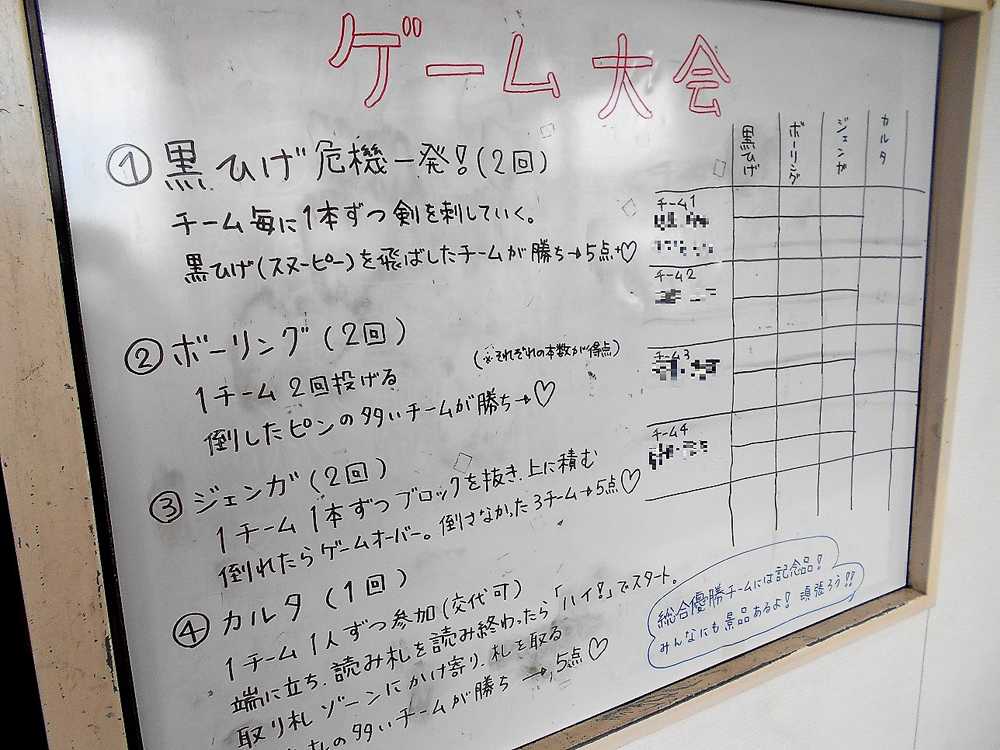 ゲーム大会
① 黒ひげ危機一発!(2回)
チーム毎に1本ずつ剣を刺していく。
黒ひげ(スヌーピー)を飛ばしたチームが勝ち→5点♡
② ボーリング(2回)
(※それぞれの本数が得点)
1チーム2回投げる
倒したピンの多いチームが勝ち→♡
③ ジェンガ(2回)
1チーム1本ずつブロックを抜き、上に積む
倒れたらゲームオーバー。倒さなかった3チーム→5点♡
④ カルタ(1回)
1チーム1人ずつ参加(交代可)
端に立ち、読み札を読み終わったら「ハイ!」でスタート。
取り札ゾーンにかけ寄り、札を取る
の多いチームが勝ち→5点♡
黒ひげ
ボーリング
ジェンガ
カルタ
チーム1
チーム2
チーム3
チーム4
総合優勝チームには記念品!
みんなにも景品あるよ!頑張ろう!!